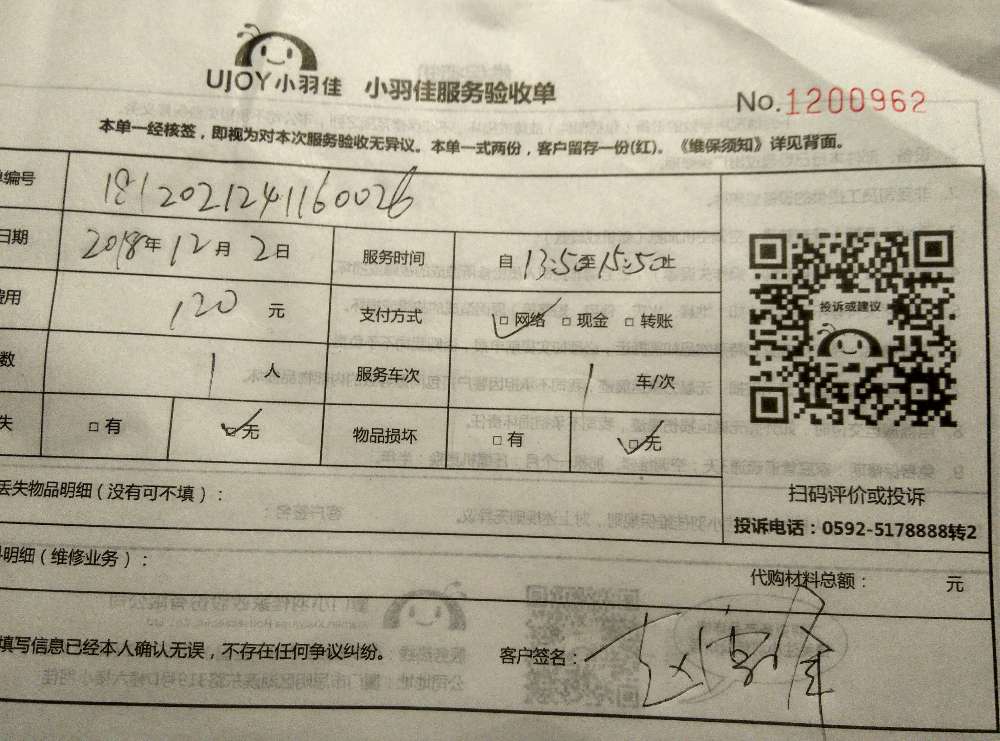 UJOY小羽佳 小羽佳服务验收单
No.1200962
本单一经核签，即视为对本次服务验收无异议。本单一式两份，客户留存一份(红)。《维保须知》详见背面。
编号 1812021241160026
日期 2018年12月2日 服务时间 自13:50至15:50止
费用 120元 支付方式 □网络 □现金 □转账
数 1人 服务车次 1车/次
失 □有 □无 物品损坏 □有 □无
投诉或建议
扫码评价或投诉
投诉电话：0592-5178888转2
丢失物品明细（没有可不填）：
明细（维修业务）：
代购材料总额： 元
填写信息已经本人确认无误，不存在任何争议纠纷。 客户签名：